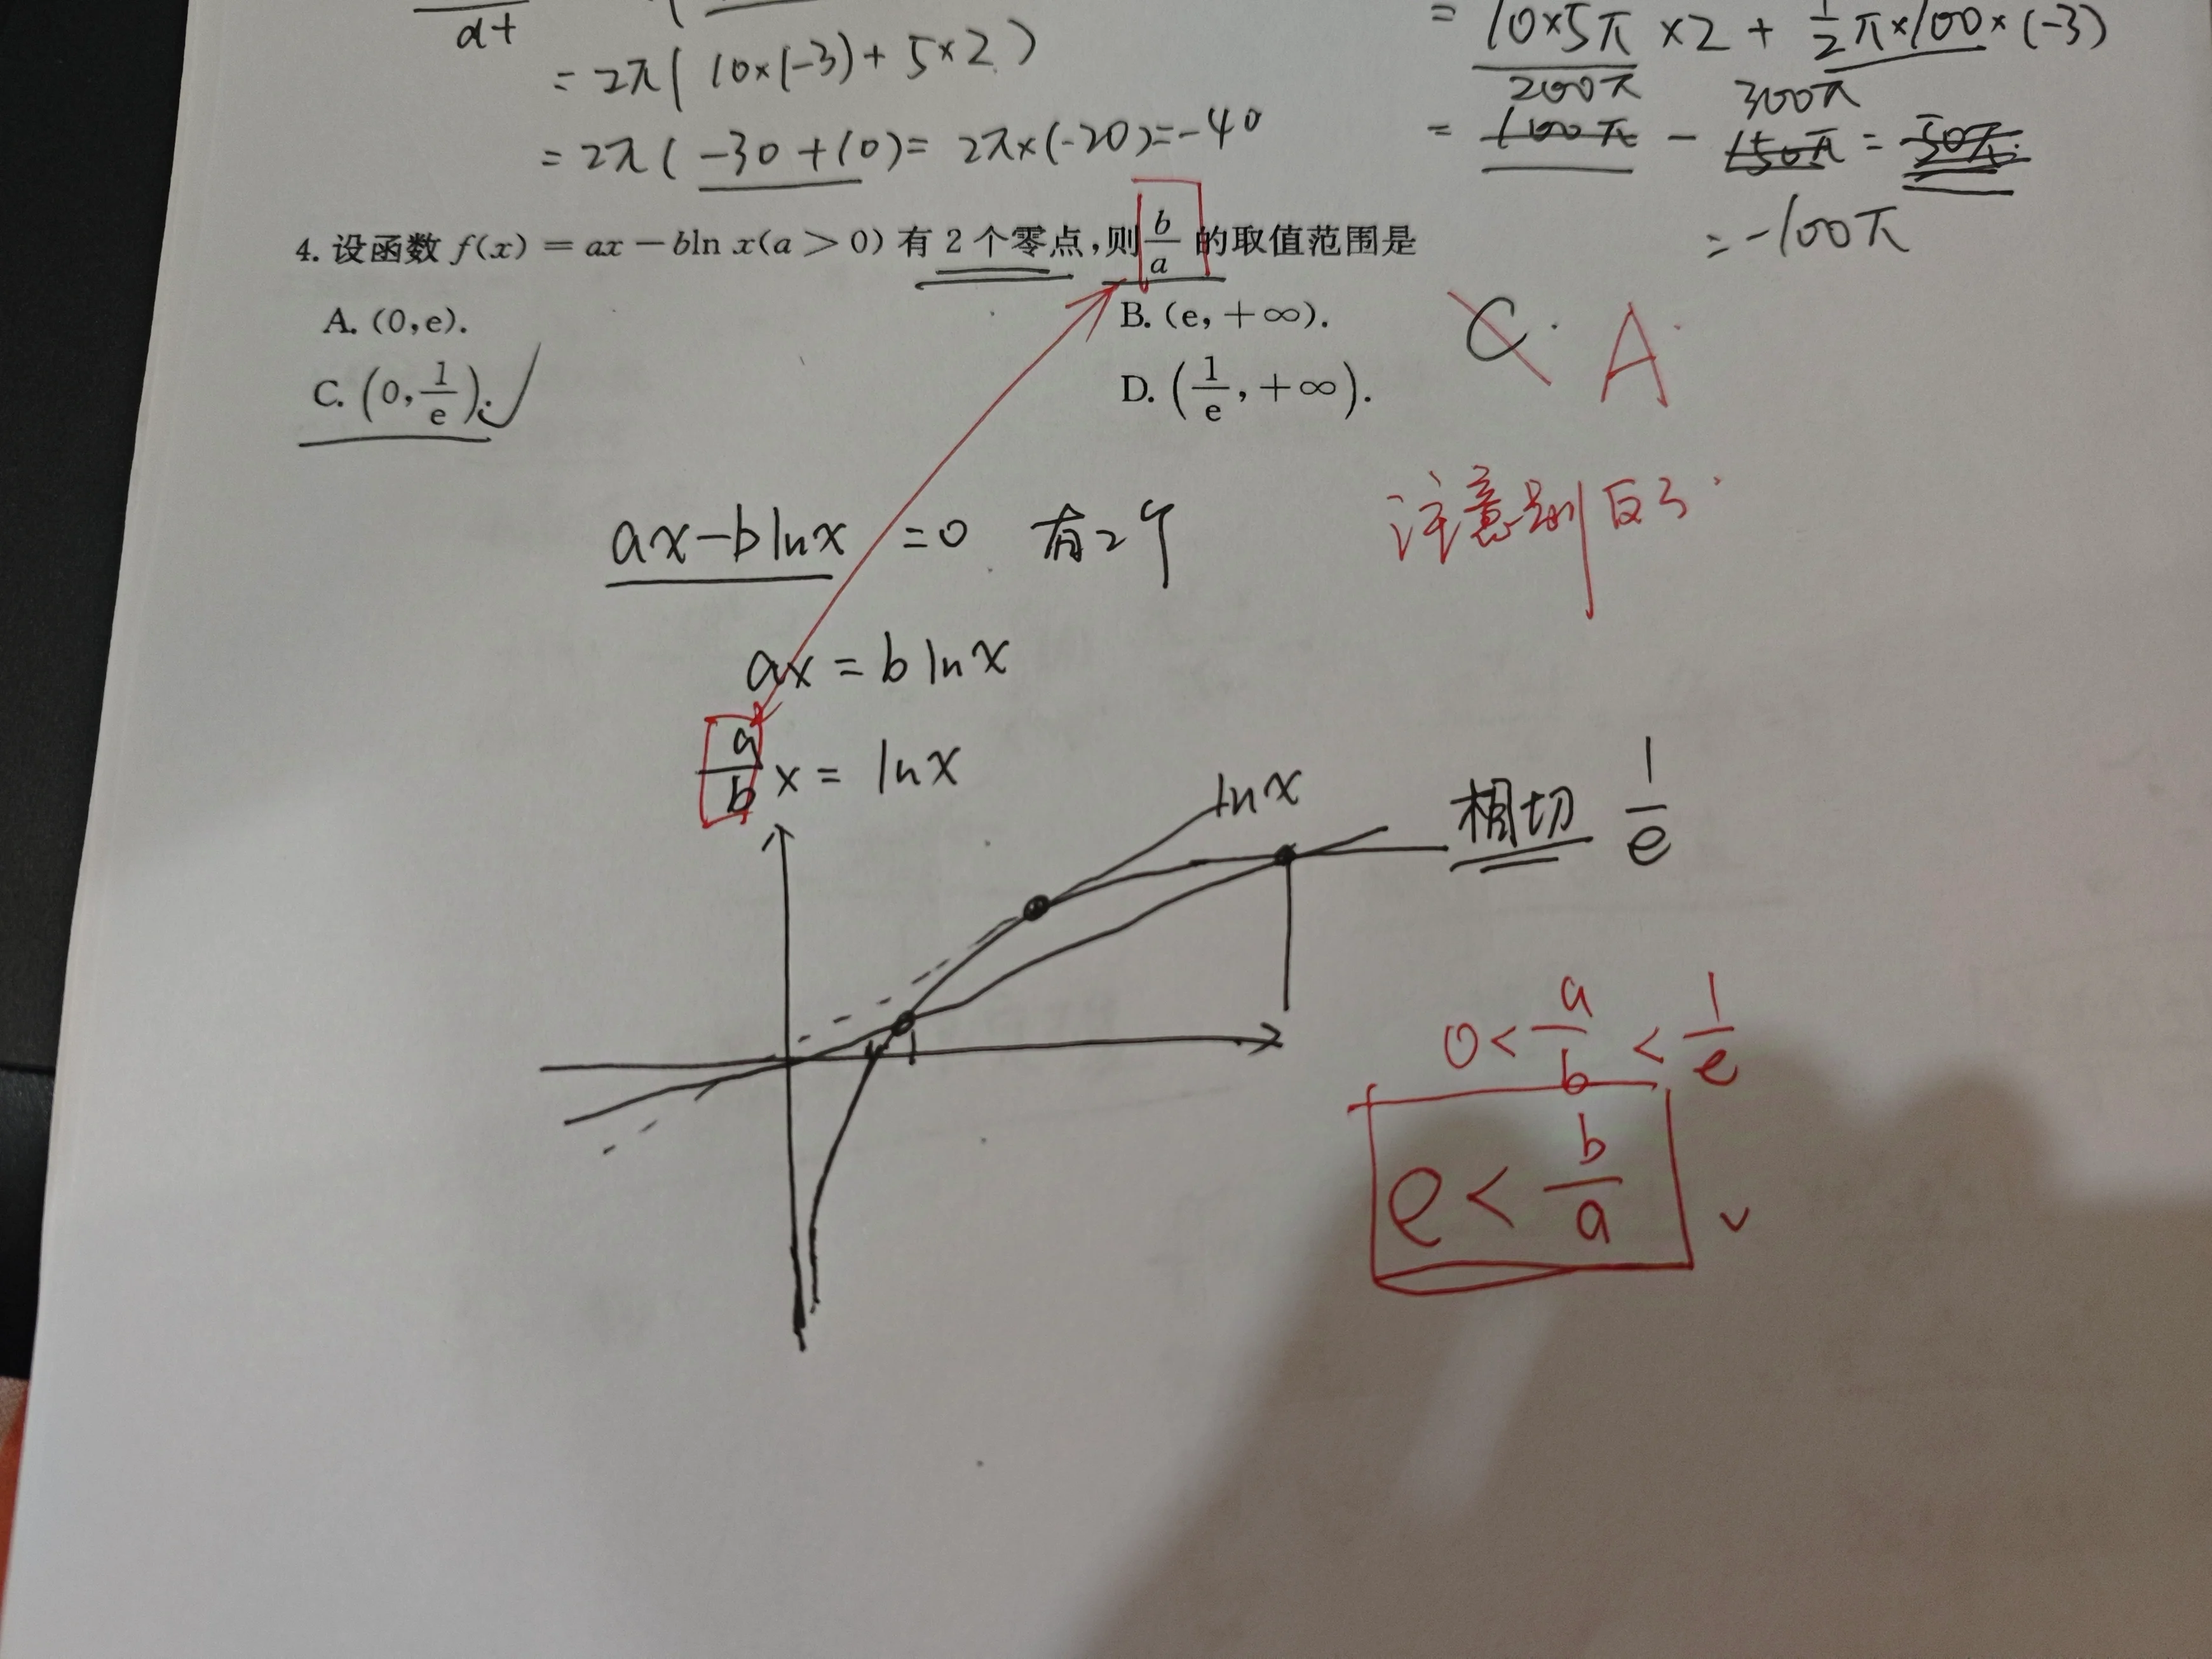 dt
= 2π( 10×(-3) + 5×2 )
= 2π( -30 + 10) = 2π×(-20) = -40
= 10×5π ×2 + 1/2 π×100×(-3)
200π 300π
= 100π - 150π = 50π
= -100π
4. 设函数 f(x) = ax - bln x(a > 0) 有 2 个零点,则 b/a 的取值范围是
A. (0,e).
B. (e, +∞).
C. (0, 1/e).
D. (1/e, +∞).
C. A.
注意别反了
ax - b lnx = 0 有2个
ax = b lnx
a/b x = lnx
lnx
相切 1/e
0 < a/b < 1/e
e < b/a